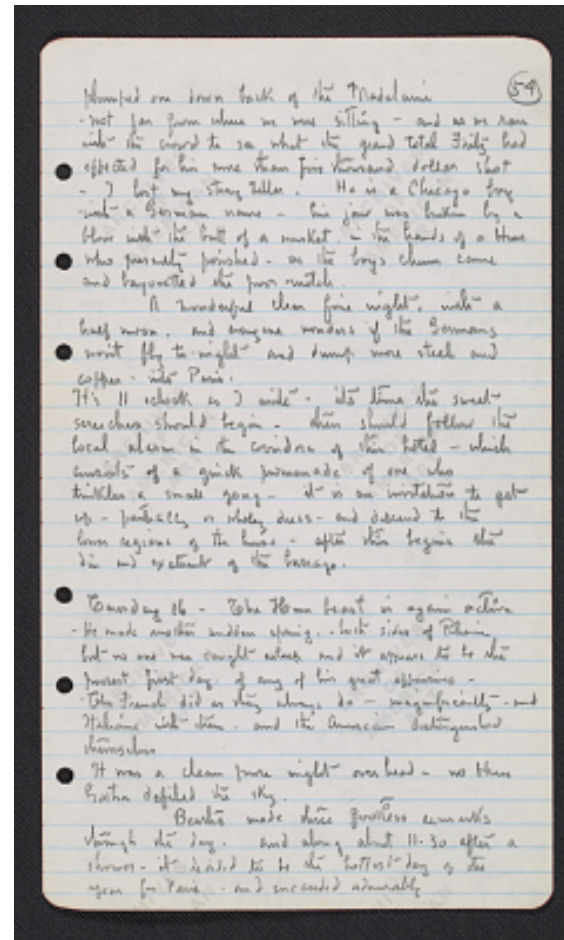 plumped one down back of the Madelaine
59
- not far from where we were sitting - and as we ran
with the crowd to see what the grand total Fritz had
effected for his more than five thousand dollar shot
- I lost my story teller. He is a Chicago boy
with a German name - his jaw was broken by a
blow with the butt of a musket in the hands of a Hun
who presently perished - as the boy's chum came
and bayonetted the poor wretch.
A wonderful clear fine night, with a
half moon. and everyone wonders if the Germans
won't fly to-night and dump more steel and
copper - into Paris.
It's 11 o'clock as I write - its time the sweet
screechers should begin - then should follow the
local alarm in the corridors of this hotel - which
consists of a quick promenade of one who
tinkles a small gong - it is an invitation to get
up - partially or wholly dress - and descend to the
lower regions of the house - after this begins the
din and excitement of the barrage.
16 - The Hun beast is again active
- He made another sudden spring. both sides of Rheims
but no one was caught and it appears to be the
poorest first day of any of his great offensives -
The French did as they always do - magnificently - and
Italians with them - and the American distinguished
themselves
It was a clear pure night over head - no Hun
Gotha defiled the sky.
Bertha made three remarks
through the day. and along about 11-30 after a
shower - it decided to be the hottest day of the
year for Paris - and succeeded admirably